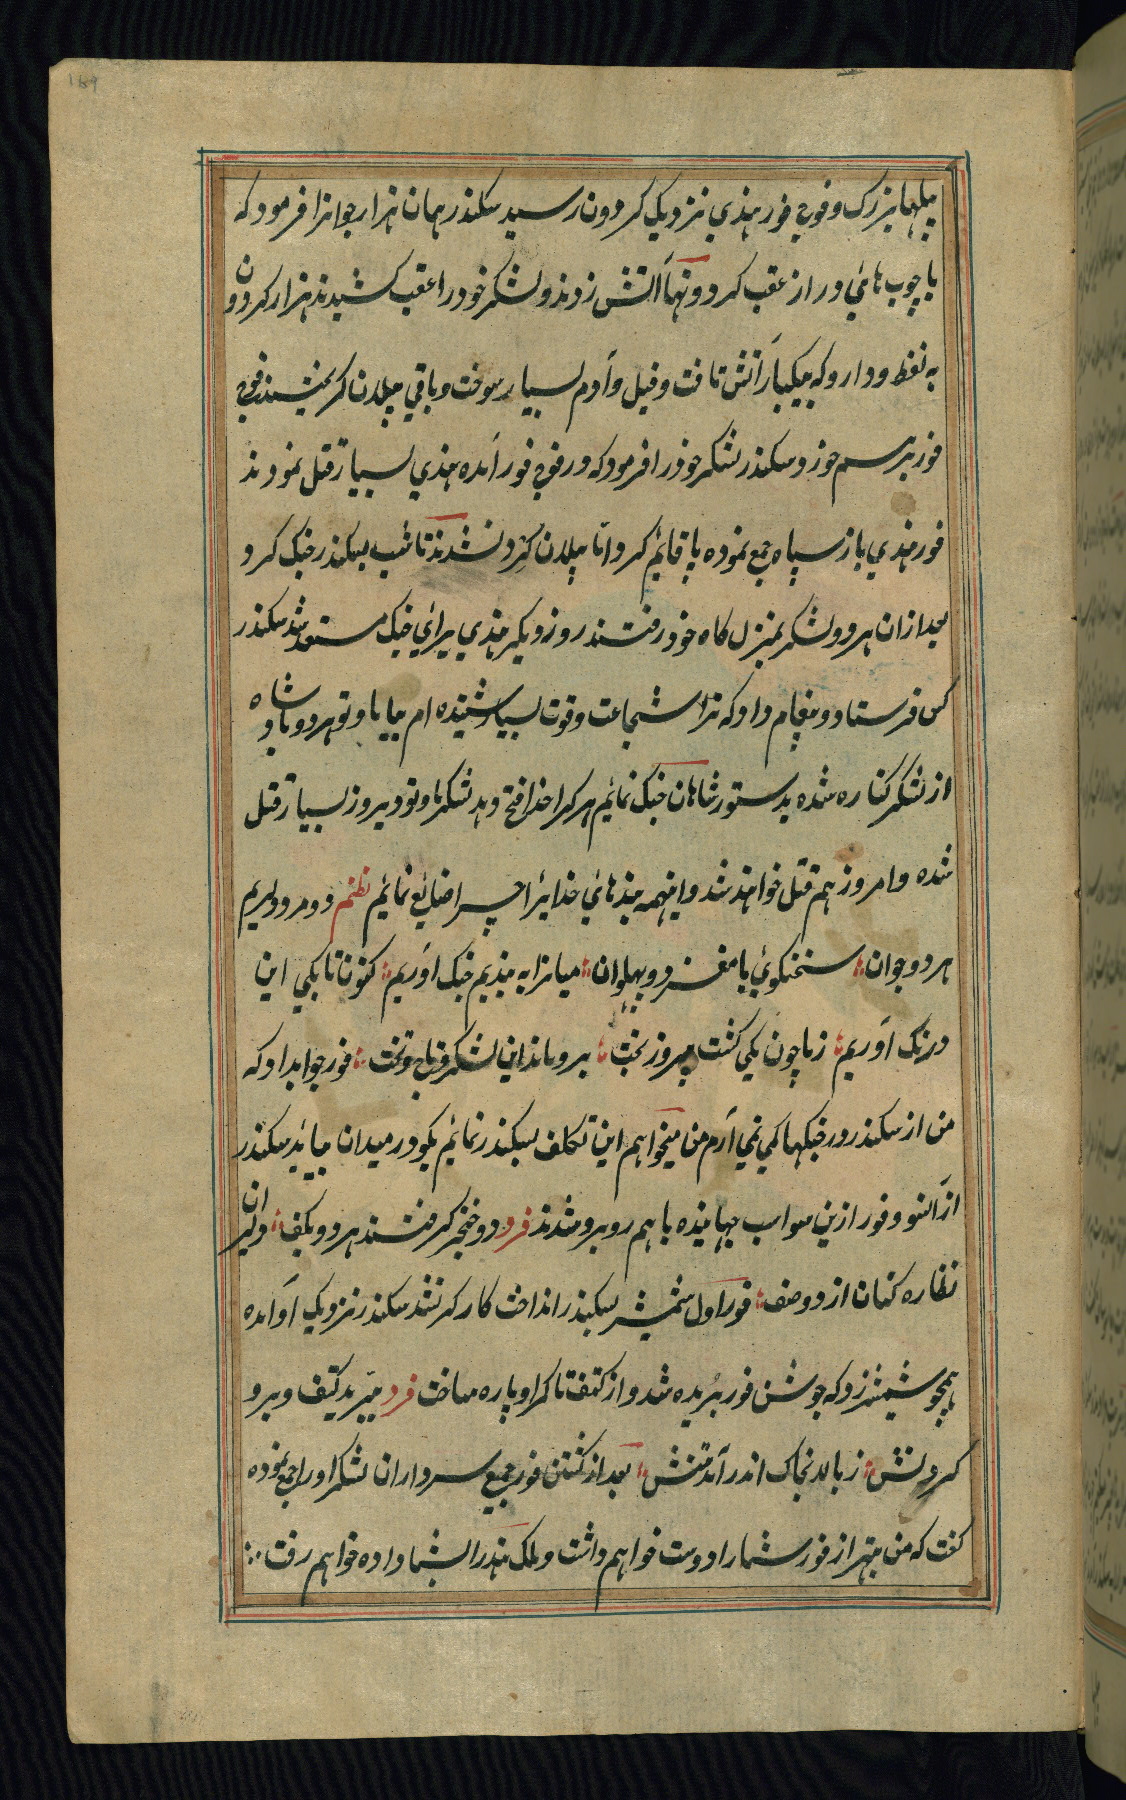 پیلها بزرک و فوج فور هندي نزدیک کردون رسید سکندر همان هزار جوانرا فرمود که
با چوب هائي دراز عقب کردونها آتش زدند و لشکر خود را عقب کشیدند هزار کردون
به نفط و دارو که بیکبار آتش تافت و فیل و آدم بسیار سوخت و باقي پیلان کریختند فوج
فور برهم خورد سکندر لشکر خود را فرمود که در فوج فور آمده هندي بسیار قتل نمودند
فور هندي باز سپاه جمع نموده پا قایم کرد اما پیلان کرد نشدند تا شب بسکندر جنک کرد
بعد ازان هر دو لشکر بمنزل کاه خود رفتند روز دیکر هندي برائي جنک مستعد شد سکندر
کس فرستاد و پیغام داد که ترا شجاعت و قوت بسیار شنیده ام بیا ما و تو هر دو پادشاه
از لشکر کناره شده بدستور شاهان جنک نمائیم هر کرا خدا فتح دهد لشکر ما و تو دیروز بسیار قتل
شده و امروز هم قتل خواهند شد و اینهمه بندهائي خدایرا چرا ضایع نمائیم نظم دو مرد دلیریم
هر دو جوان سخنکوئي با مغز و پهلوان میانرا به بندیم جنک آوریم کنون تا بکي این
درنک آوریم زما چون یکي کشت پیروز بخت برو ماند این لشکر و تاج و تخت فور جواب داد که
من از سکندر در جنکها کمي نمي آرم من میخواهم این تکلف بسکندر نمائیم بکو در میدان بیاید سکندر
از آنسو و فور ازین سو اسب جهانیده با هم روبرو شدند فرد دو خنجر کرفتند هر دو بکف دلیران
نظاره کنان از دو صف فور اول شمشیر بسکندر انداخت کارکر نشد سکندر نزدیک او آمده
همچو شمشیر زد که جوشن فور بریده شد و از کتف تا کمر او پاره ساخت فرد ببرید کتف و برو
کردنش ز بالا بخاک اندر آمد تنش بعد از کشتن فور جمیع سرداران لشکر او را جمع نموده
کفت که من بهتر از فور شما را دوست خواهم داشت و ملک هند را بشما داده خواهم رفت